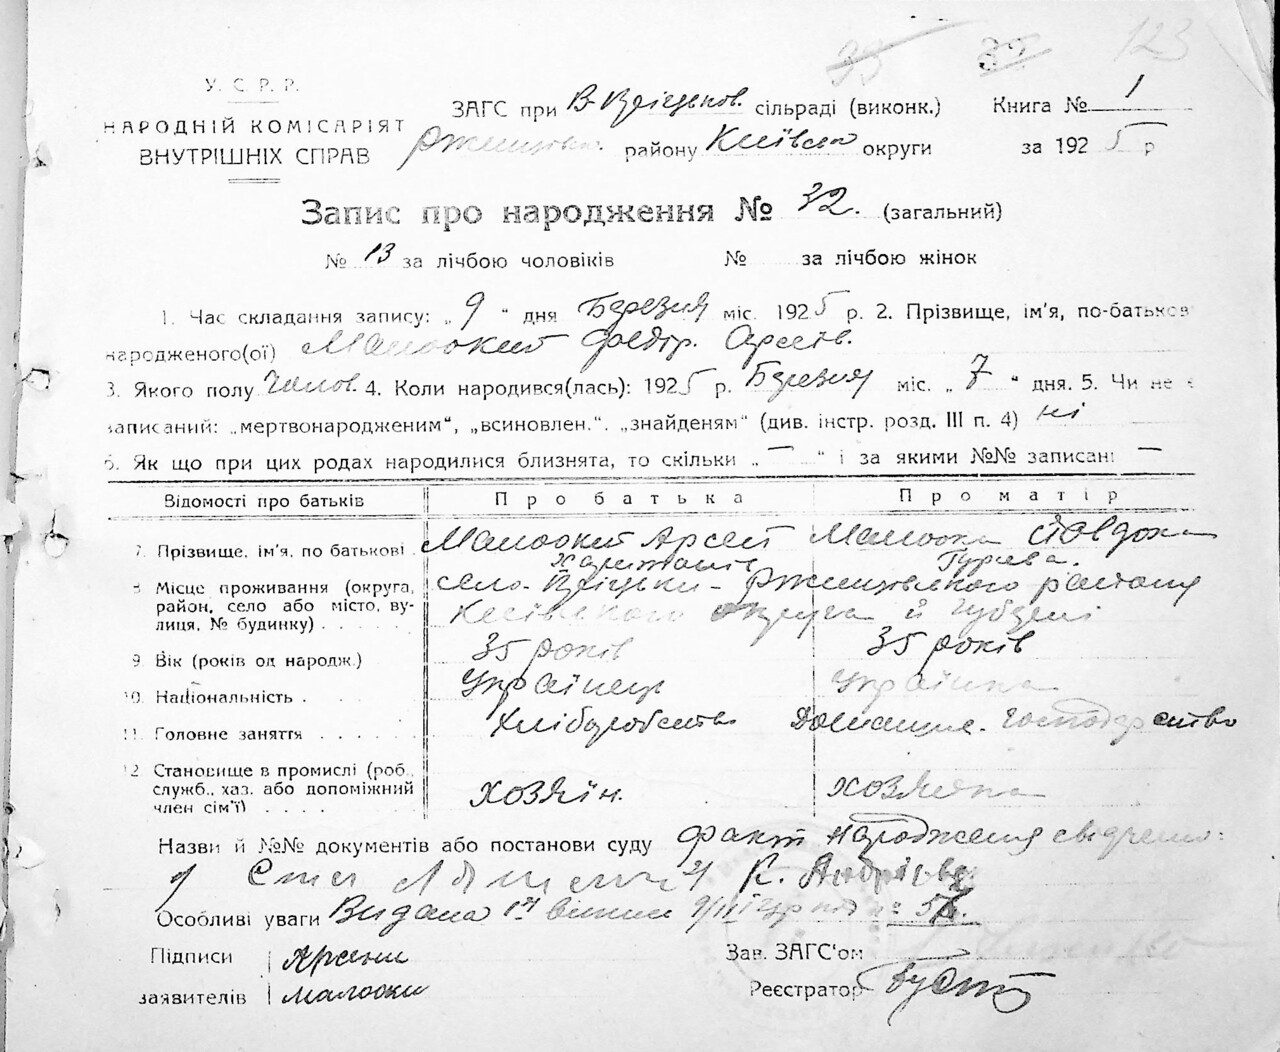 33 32 123
У. С. Р. Р.
НАРОДНІЙ КОМІСАРІЯТ
ВНУТРІШНІХ СПРАВ
ЗАГС при сільраді (виконк.) Книга № 1
району Київсько округи за 1925 р
Запис про народження № 32. (загальний)
№ 13 за лічбою чоловіків № за лічбою жінок
1. Час складання запису: „ 9 " дня Березня міс. 1925 р. 2. Прізвище, ім'я, по-батьков
народженого(ої) Малоокий Федір. Арсеїв.
3. Якого полу Чолов. 4. Коли народився(лась): 1925 р. Березня міс. „ 7 " дня. 5. Чи не є
записаний: „мертвонародженим", „всиновлен.". „знайденям" (див. інстр. розд. III п. 4) ні
6. Як що при цих родах народилися близнята, то скільки „ — " і за якими №№ записані —
Відомості про батьків Про батька Про матір
7. Прізвище, ім'я, по батькові Малоокий Арсей Малоока Явдоха
8 Місце проживання (округа, село Ржищівського району
район, село або місто, ву-
лиця, № будинку) Київського округа й Губерні
9. Вік (років од народж.) 35 років 35 років
10. Національність Українець Українка
11. Головне заняття Хліборобство Домашнє. Господарство
12 Становище в промислі (роб.,
служб., хаз. або допоміжний хозяїн. хозяйка
член сім'ї)
Назви й №№ документів або постанови суду факт народження свідчили:
К. Андрієв
Особливі уваги Видана № 57.
Підписи Арсени Зав. ЗАГС'ом
заявителів Малооки Реєстратор